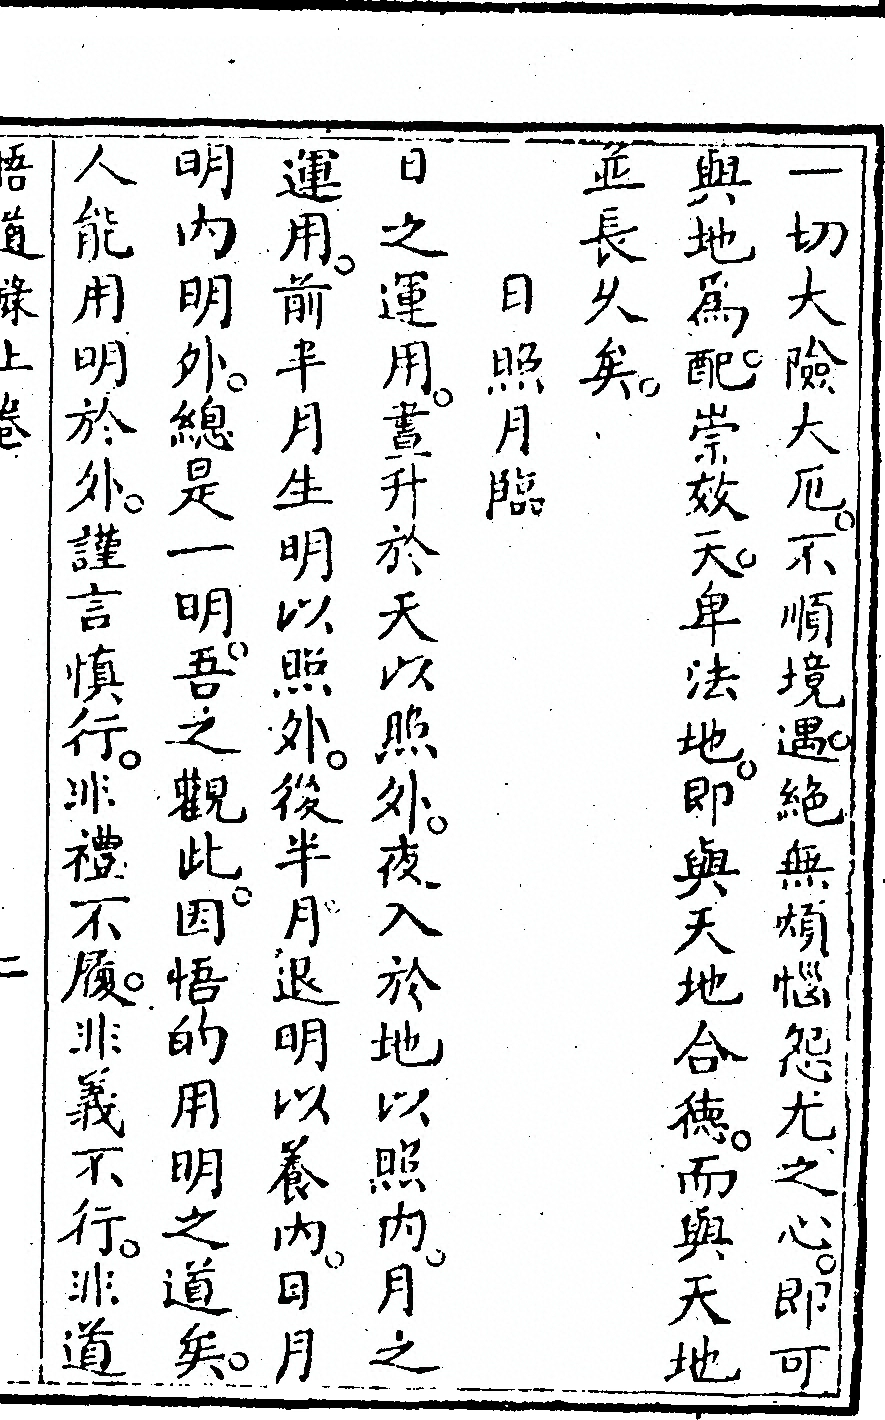 一切大險大厄。不順境遇。絕無煩惱怨尤之心。即可
與地爲配。崇效天。卑法地。即與天地合德。而與天地
並長久矣。
日照月臨
日之運用。晝升於天以照外。夜入於地以照內。月之
運用。前半月生明以照外。後半月。退明以養內。日月
明內明外。總是一明。吾之觀此。因悟的用明之道矣。
人能用明於外。謹言慎行。非禮不履。非義不行。非道
悟道錄上卷 二